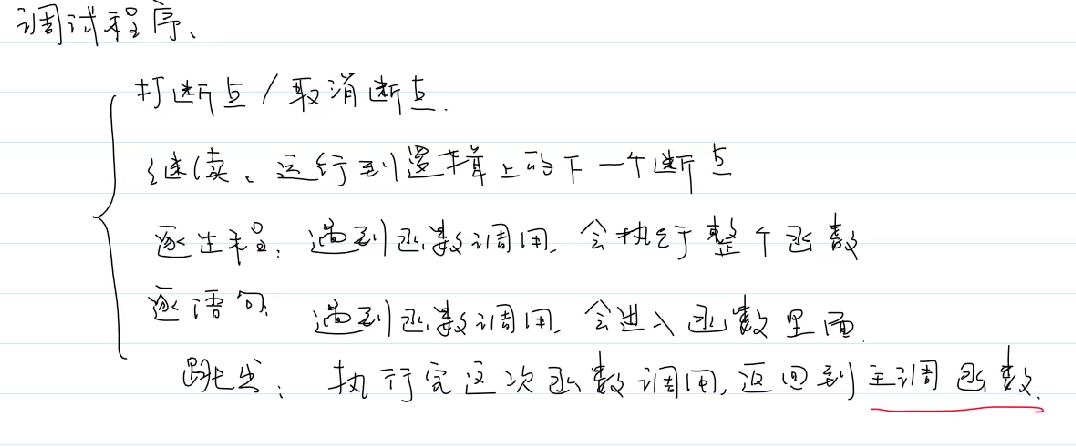 调试程序、
打断点/取消断点.
继续、运行到逻辑上的下一个断点
逐过程: 遇到函数调用, 会执行整个函数
逐语句: 遇到函数调用, 会进入函数里面.
跳出: 执行完这次函数调用, 返回到主调函数.